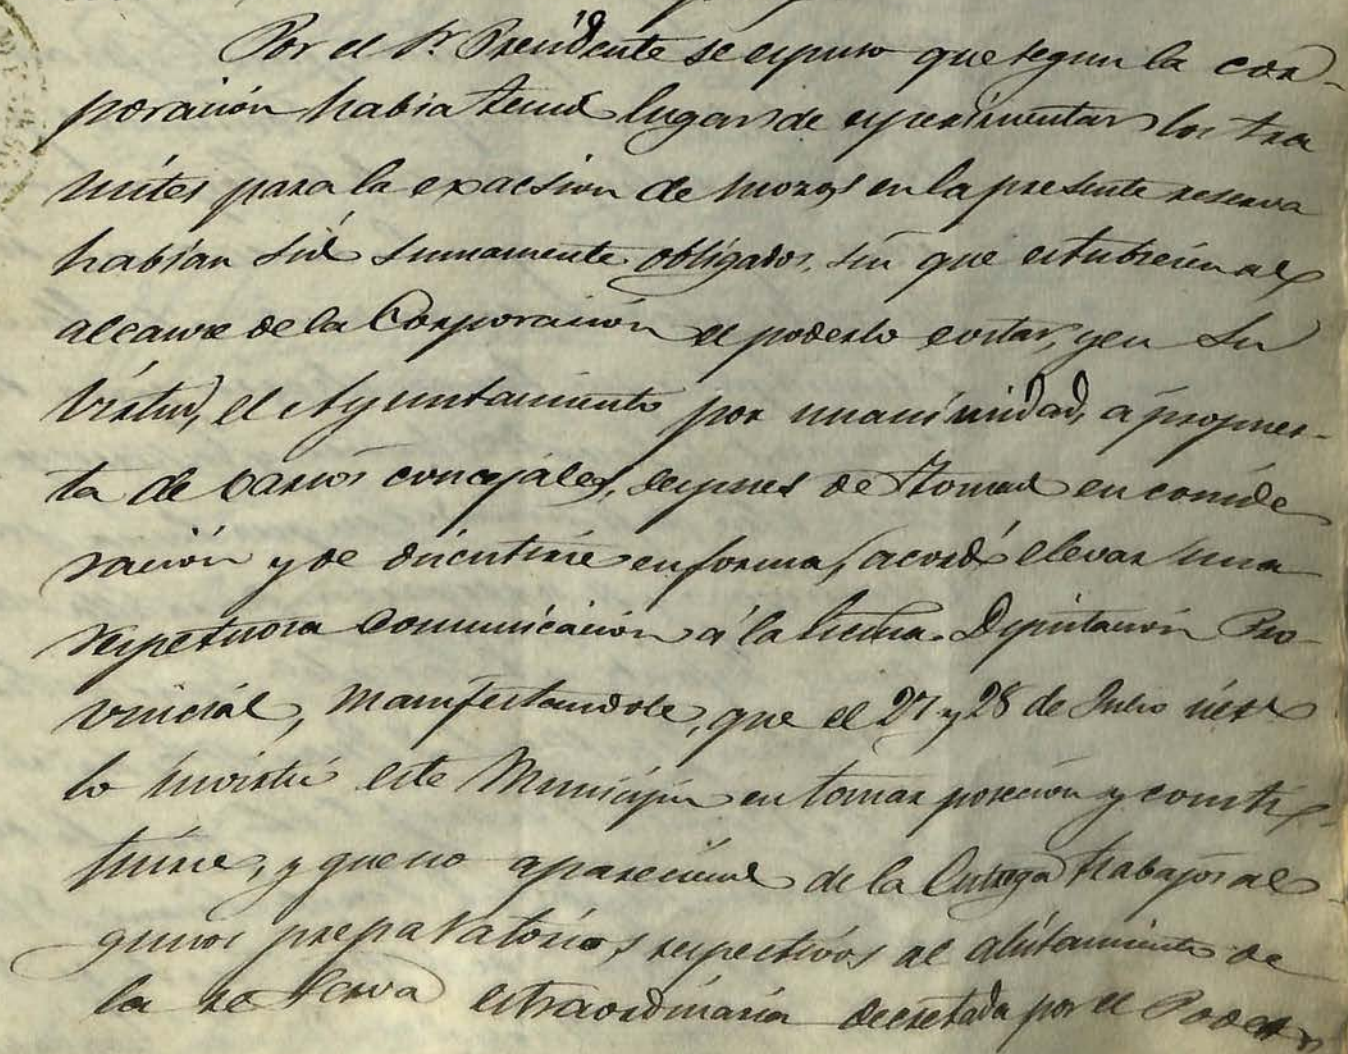 Por el Sr. Presidente se espuso que segun la cor-
poración habia tenido lugar de esperimentar los tra
mites para la exacsion de mozos en la presente reserva
habian sido sumamente obligados, sin que estubiesen al
alcance de la Corporación el poderlo evitar, y en su
virtud, el Ayuntamiento por unanimidad, á propues-
ta de varios concejales, despues de tomado en conside
ración y de discutirse en forma, acordó elevar una
respetuosa comunicación á la Escma. Diputación Pro-
vincial, manifestandole, que el 27 y 28 de Julio
lo invirtió este Municipio en tomar posecion y consti-
tuirse, y que no apareciendo de la Entrega trabajos al-
gunos preparatorios, respectivos al alistamiento de
la reserva estraordinaria decretada por el Poder